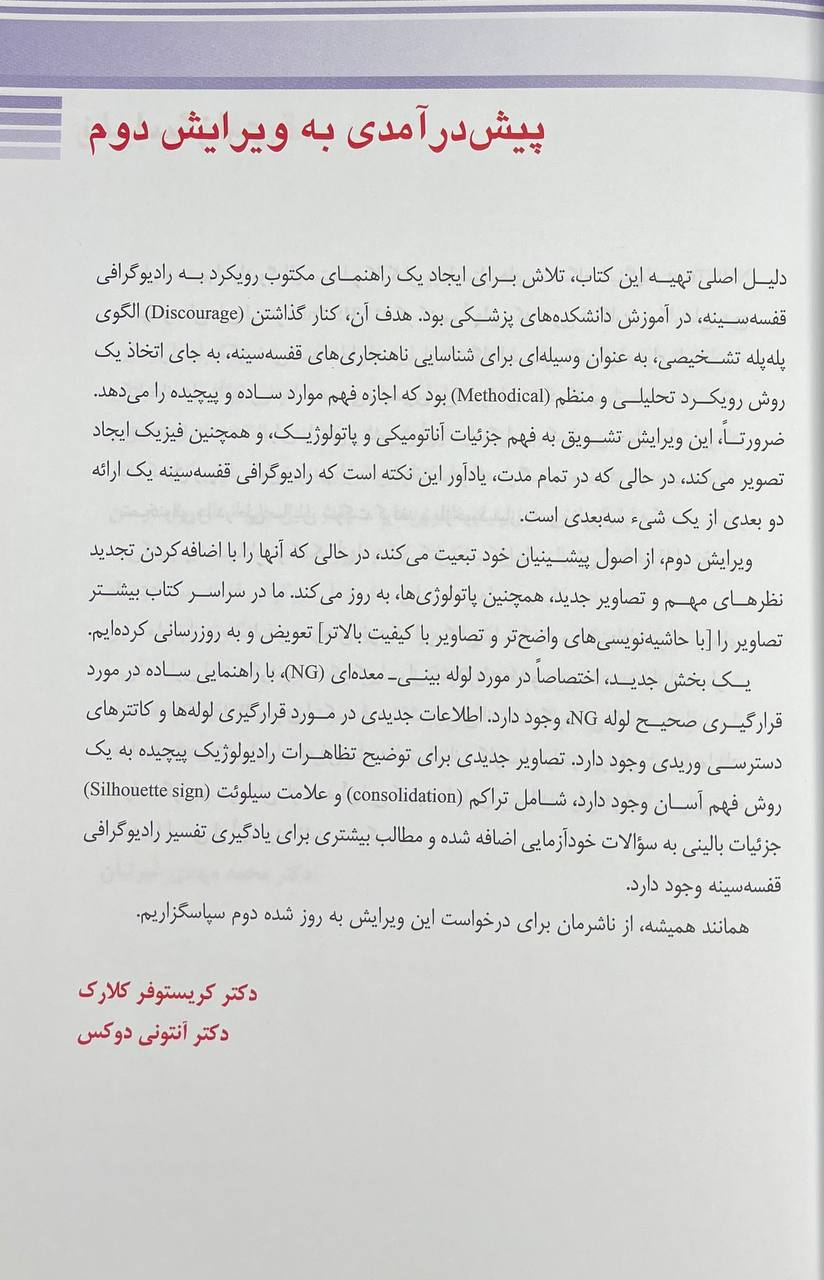 پیش‌درآمدی به ویرایش دوم
دلیل اصلی تهیه این کتاب، تلاش برای ایجاد یک راهنمای مکتوب رویکرد به رادیوگرافی
قفسه‌سینه، در آموزش دانشکده‌های پزشکی بود. هدف آن، کنار گذاشتن (Discourage) الگوی
پله‌پله تشخیصی، به عنوان وسیله‌ای برای شناسایی ناهنجاری‌های قفسه‌سینه، به جای اتخاذ یک
روش رویکرد تحلیلی و منظم (Methodical) بود که اجازه فهم موارد ساده و پیچیده را می‌دهد.
ضرورتاً، این ویرایش تشویق به فهم جزئیات آناتومیکی و پاتولوژیک، و همچنین فیزیک ایجاد
تصویر می‌کند، در حالی که در تمام مدت، یادآور این نکته است که رادیوگرافی قفسه‌سینه یک ارائه
دو بعدی از یک شیء سه‌بعدی است.
ویرایش دوم، از اصول پیشینیان خود تبعیت می‌کند، در حالی که آنها را با اضافه‌کردن تجدید
نظرهای مهم و تصاویر جدید، همچنین پاتولوژی‌ها، به روز می‌کند. ما در سراسر کتاب بیشتر
تصاویر را [با حاشیه‌نویسی‌های واضح‌تر و تصاویر با کیفیت بالاتر] تعویض و به روزرسانی کرده‌ایم.
یک بخش جدید، اختصاصاً در مورد لوله بینی‌ـ معده‌ای (NG)، با راهنمایی ساده در مورد
قرارگیری صحیح لوله NG، وجود دارد. اطلاعات جدیدی در مورد قرارگیری لوله‌ها و کاتترهای
دسترسی وریدی وجود دارد. تصاویر جدیدی برای توضیح تظاهرات رادیولوژیک پیچیده به یک
روش فهم آسان وجود دارد، شامل تراکم (consolidation) و علامت سیلوئت (Silhouette sign)
جزئیات بالینی به سؤالات خودآزمایی اضافه شده و مطالب بیشتری برای یادگیری تفسیر رادیوگرافی
قفسه‌سینه وجود دارد.
همانند همیشه، از ناشرمان برای درخواست این ویرایش به روز شده دوم سپاسگزاریم.
دکتر کریستوفر کلارک
دکتر آنتونی دوکس